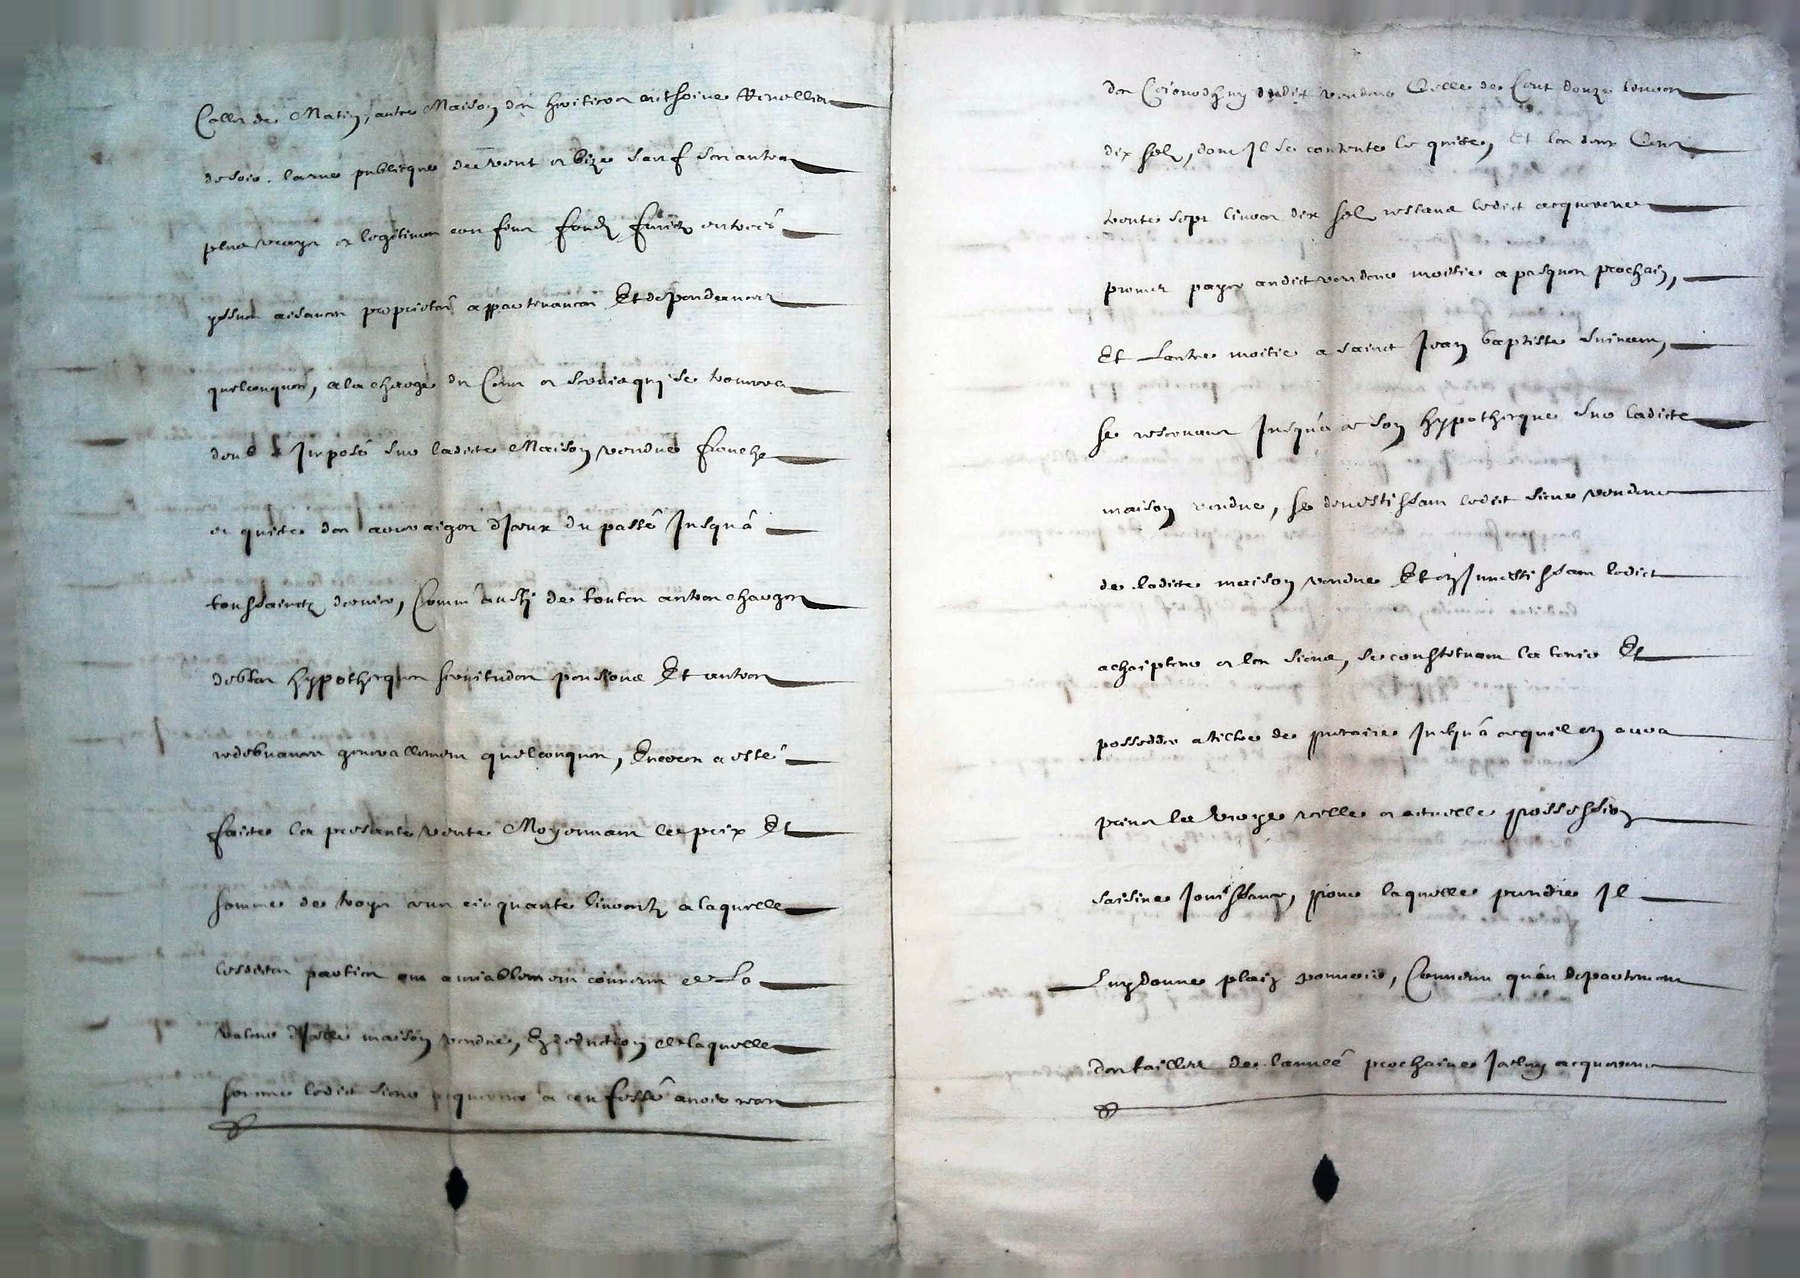 Celle de Matin, autre Maison des heritiers anthoine Revellier
de soir, la rue publicque de vent et bize sauf ses autres
plus vrays et legitimes confins fondz fruictz entrées
yssues aisances proprietés appartenances Et deppendences
quelconques, a la charge du Cens et servis qui se trouvera
deub & Imposé sur ladicte Maison vendue franche
et quicte des arreraiges d'Iceux du passé Jusqu'à
toussainctz dernier, Comm'aussy de toutes autres charges
debtes hypotheques servitudes pensions Et autres
redebvances generallement quelconques, Encores a esté
faicte la presente vente Moyennant le prix Et
somme de troys cens cinquante livres a laquelle
lesdites parties ont amiablement convenu et La
valeur d'Icelle maison vendue, En deduction de laquelle
somme ledict sieur acquereur a confessé avoir
des Ce jourd'huy dudit vendeur Celle de Cent douze livres
dix solz, dont Il se contente le quicte, Et les deux Cens
trente sept livres dix solz restans ledict acquereur
promet payer audict vendeur moitie a pasques prochain,
Et L'autre moitie a sainct Jean baptiste suivant,
se reservant Jusqu'à ce son hypotheque sur ladicte
maison vendue, se devestissant ledict sieur vendeur
de ladicte maison vendue Et en Investissant ledict
achaipteur et les siens, se constituant la tenir Et
posseddér a tiltre de precaire Jusqu'à ce qu'il en aura
prins la vraye reelle et actuelle possession
saisine Jouissance, pour laquelle prendre Il
Luy donne plain pouvoir, Convenu qu'au departement
des tailles de l'année prochaine Jcelluy acquereur